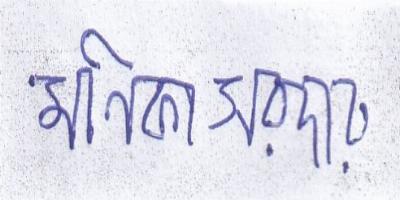 মনিকা সরদার